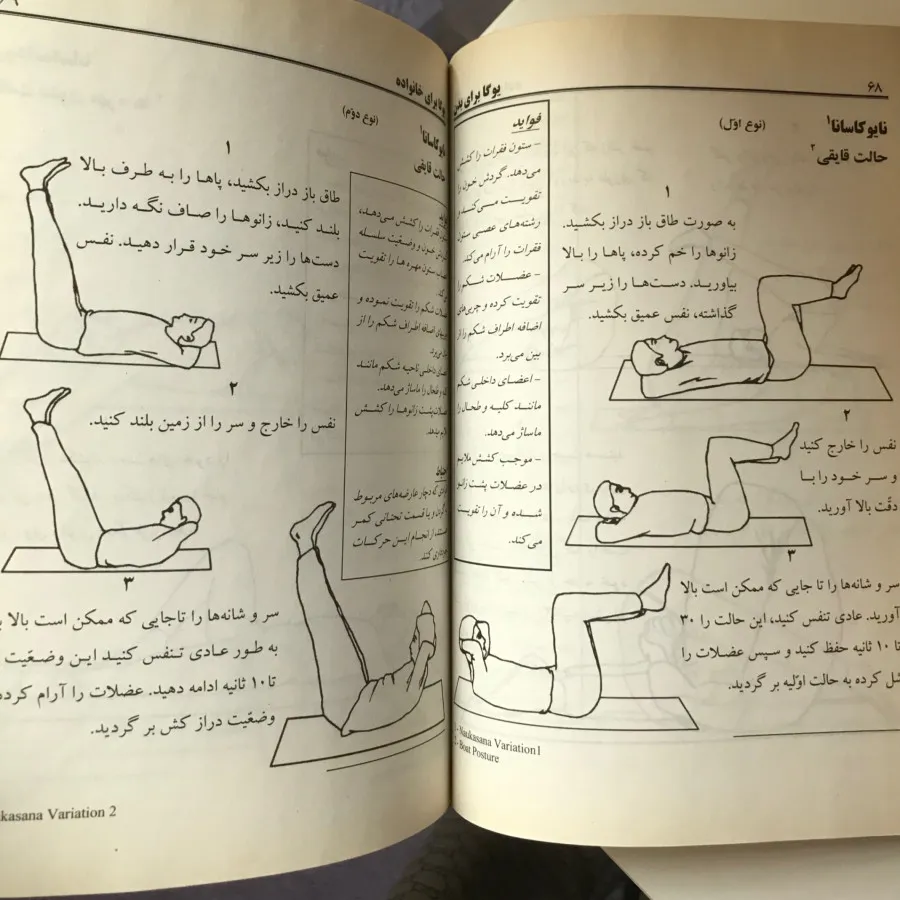 ۶۸
یوگا برای
نایوکاسانا۱
(نوع اوّل)
حالت قایقی ۲
فواید
– ستون فقرات را کشش
می‌دهد. گردش خون را
تقویت می‌کند و
رشته‌های عصبی ستون
فقرات را آرام می‌کند.
– عضلات شکم را
تقویت کرده و چربی‌های
اضافه اطراف شکم را از
بین می‌برد.
– اعضای داخلی شکم
مانند کلیه و طحال را
ماساژ می‌دهد.
– موجب کشش ملایم
در عضلات پشت زانو
شده و آن را تقویت
می‌کند.
۱
به صورت طاق باز دراز بکشید.
زانوها را خم کرده، پاها را بالا
بیاورید. دست‌ها را زیر سر
گذاشته، نفس عمیق بکشید.
۲
نفس را خارج کنید
و سر خود را با
دقّت بالا آورید.
۳
سر و شانه‌ها را تا جایی که ممکن است بالا
آورید. عادی تنفس کنید، این حالت را ۳۰
تا ۱۰ ثانیه حفظ کنید و سپس عضلات را
شل کرده به حالت اوّلیه بر گردید.
Naukasana Variation 1
Boat Posture
یوگا برای خانواده
نایوکاسانا۱
(نوع دوّم)
حالت قایقی
فقرات را کشش می‌دهد،
خون و وضعیت سلسله
ستون مهره‌ها را تقویت
شکم را تقویت نموده و
اضافه اطراف شکم را از
داخلی ناحیه شکم مانند
و طحال را ماساژ می‌دهد.
پشت زانوها را کشش
که دچار عارضه‌های مربوط
و یا قسمت تحتانی کمر
از انجام این حرکات
کنند.
۱
طاق باز دراز بکشید، پاها را به طرف بالا
بلند کنید، زانوها را صاف نگه دارید.
دست‌ها را زیر سر خود قرار دهید. نفس
عمیق بکشید.
۲
نفس را خارج و سر را از زمین بلند کنید.
۳
سر و شانه‌ها را تاجایی که ممکن است بالا
به طور عادی تنفس کنید این وضعّیت
تا۱۰ ثانیه ادامه دهید. عضلات را آرام کرده
وضعّیت دراز کش بر گردید.
Variation 2